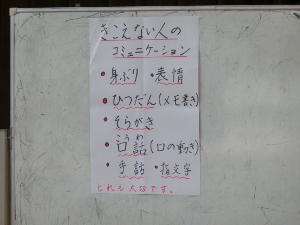 きこえない人の
コミュニケーション
・身ぶり ・表情
・ひつだん(メモ書き)
・そらがき
こうわ
・口話(口の動き)
・手話 ・指文字
どれも大切です。